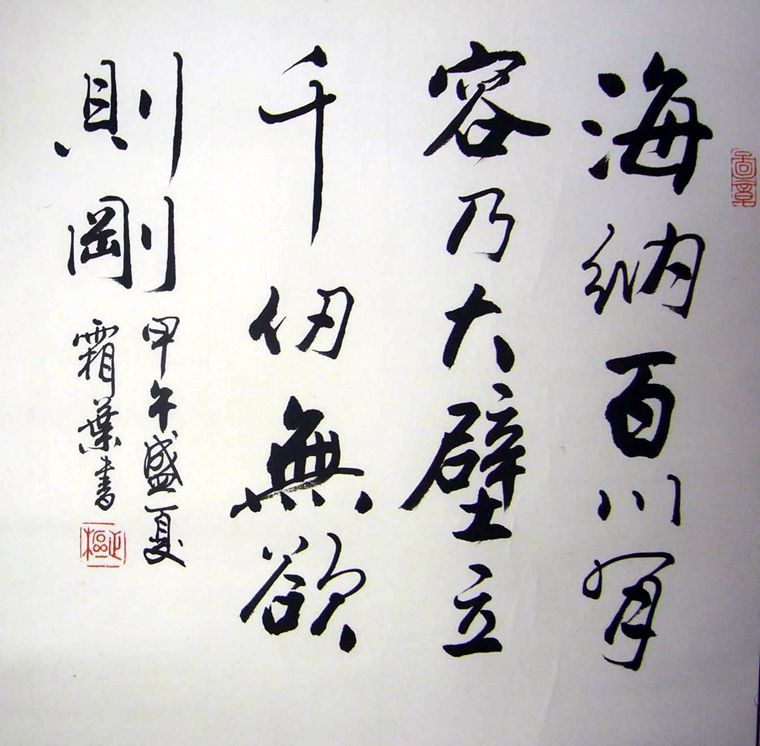 海納百川有
容乃大壁立
千仞無欲
則剛
甲午盛夏
霜葉書